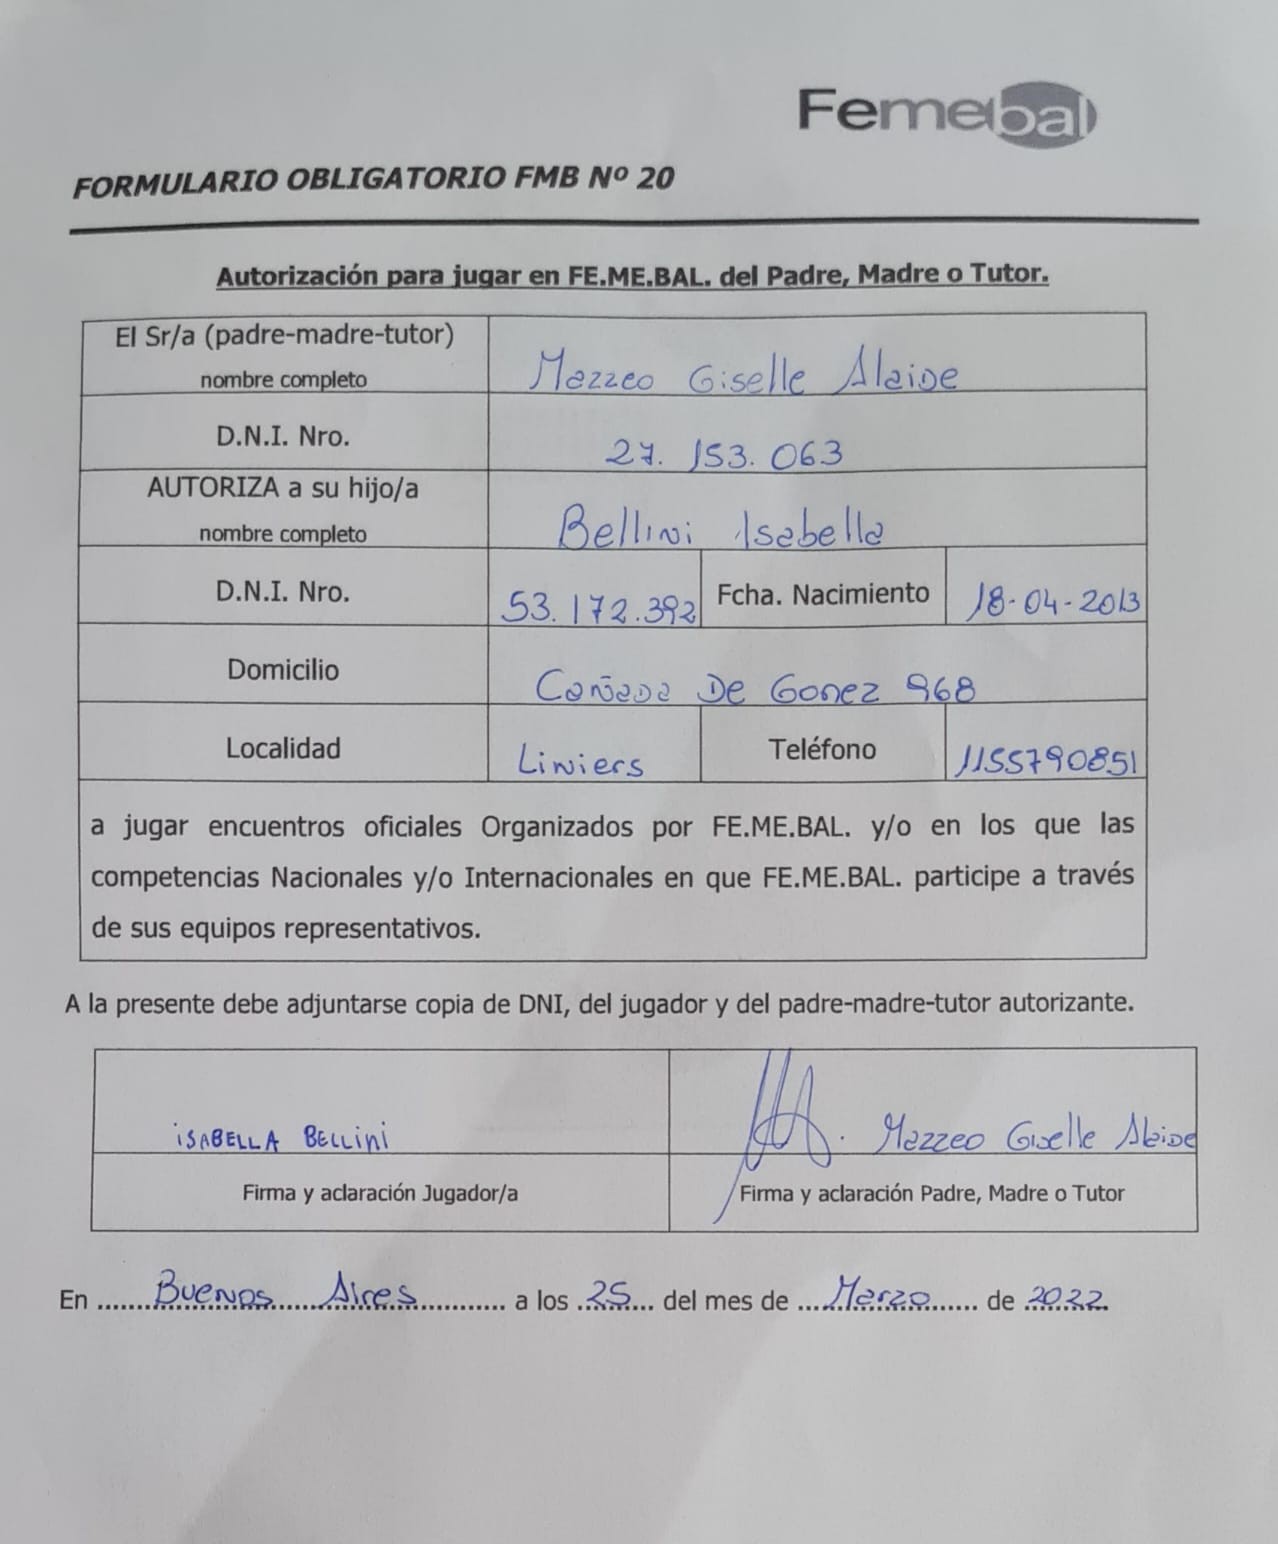 Femebal
FORMULARIO OBLIGATORIO FMB Nº 20
Autorización para jugar en FE.ME.BAL. del Padre, Madre o Tutor.
El Sr/a (padre-madre-tutor)
nombre completo
Mazzeo Giselle Alaide
D.N.I. Nro.
27.153.063
AUTORIZA a su hijo/a
nombre completo
Bellini Isabella
D.N.I. Nro. 53.172.392 Fcha. Nacimiento 18-04-2013
Domicilio Cañada De Gomez 968
Localidad Liniers Teléfono 1155790851
a jugar encuentros oficiales Organizados por FE.ME.BAL. y/o en los que las
competencias Nacionales y/o Internacionales en que FE.ME.BAL. participe a través
de sus equipos representativos.
A la presente debe adjuntarse copia de DNI, del jugador y del padre-madre-tutor autorizante.
ISABELLA BELLINI Mazzeo Giselle Alaide
Firma y aclaración Jugador/a Firma y aclaración Padre, Madre o Tutor
En Buenos Aires a los 25 del mes de Marzo de 2022